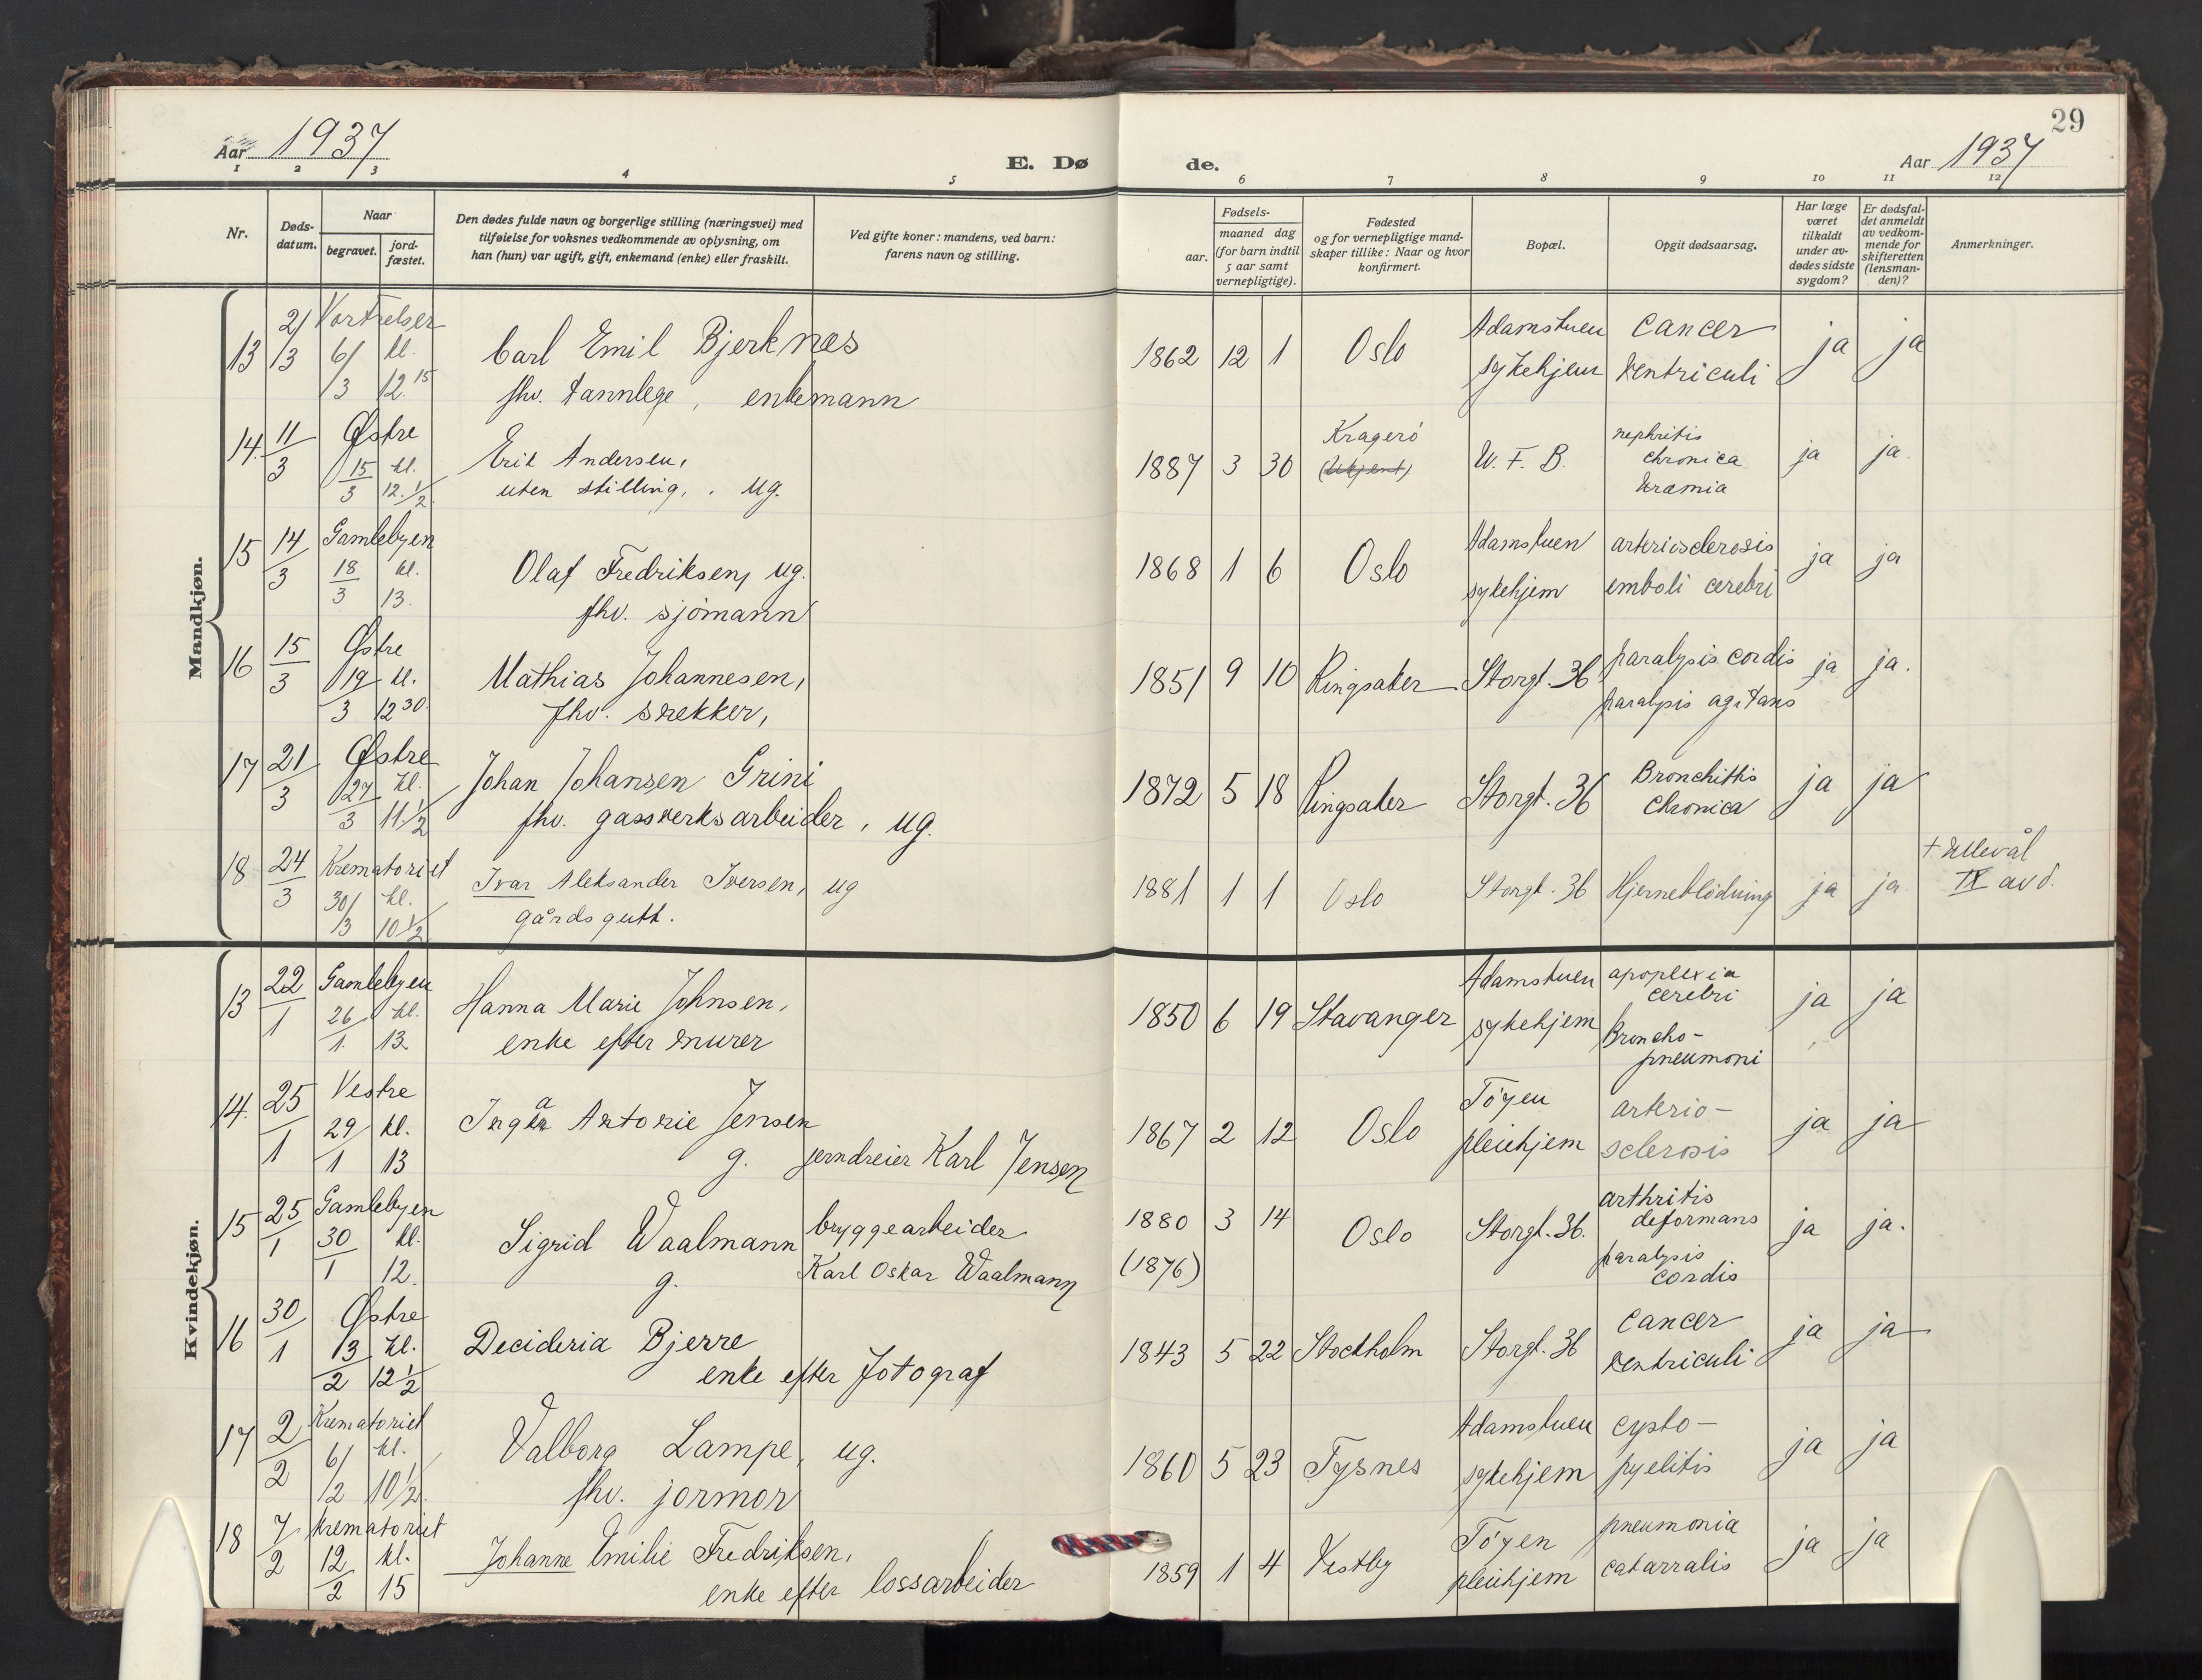 29
Aar 1937
E. Dø
de.
Aar 1937
1 2 3 4 5 6 7 8 9 10 11 12
Nr.
Døds-
datum.
Naar
begravet.
jord-
fæstet.
Den dødes fulde navn og borgerlige stilling (næringsvei) med
tilføielse for voksnes vedkommende av oplysning, om
han (hun) var ugift, gift, enkemand (enke) eller fraskilt.
Ved gifte koner: mandens, ved barn:
farens navn og stilling.
Fødsels-
aar.
maaned dag
(for barn indtil
5 aar samt
vernepligtige).
Fødested
og for vernepligtige mand-
skaper tillike: Naar og hvor
konfirmert.
Bopæl.
Opgit dødsaarsag.
Har læge
været
tilkaldt
under av-
dødes sidste
sygdom?
Er dødsfal-
det anmeldt
av vedkom-
mende for
skifteretten
(lensman-
den)?
Anmerkninger.
Mandkjøn.
13 2/3 Vor Frelser 6/3 kl. 12.15
Carl Emil Bjerknæs
fhv. tannlege, enkemann
1862 12 1 Oslo
Adamstuen
sykehjem
cancer
ventriculi
ja ja
14. 11/3 Østre 15/3 kl. 12.1/2
Erik Andersen,
uten stilling, ug.
1887 3 30
Kragerø
(Ukjent)
U. F. B.
nephritis
chronica
uræmia
ja ja.
15 14/3 Gamlebyen 18/3 kl. 13.
Olaf Fredriksen, ug.
fhv. sjømann
1868 1 6 Oslo
Adamstuen
sykehjem
arteriosclerosis
emboli cerebri
ja ja
16 15/3 Østre 19/3 kl. 12 30.
Mathias Johannesen,
fhv. snekker,
1851 9 10 Ringsaker
Storgt. 36
paralysis cordis
paralysis agitans
ja ja.
17 21/3 Østre 27/3 kl. 11.1/2
Johan Johansen Grini
fhv. gassverksarbeider, ug.
1872 5 18 Ringsaker
Storgt. 36
Bronchittis
chronica
ja ja
18 24/3 Krematoriet 30/3 kl. 10 1/2
Ivar Aleksander Iversen, ug
gårdsgutt.
1881 1 1 Oslo
Storgt. 36
Hjerneblødning
ja ja.
† Ullevål
IX avd.
Kvindekjøn.
13 22/1 Gamlebyen 26/1. kl. 13
Hanna Marie Johnsen,
enke efter murer
1850 6 19 Stavanger
Adamstuen
sykehjem
apoplexia
cerebri
Broncho-
pneumoni
ja ja
14. 25/1 Vestre 29/1 kl. 13
Inga Antonie Jensen
g. jerndreier Karl Jensen
1867 2 12 Oslo
Tøyen
pleiehjem
arterio-
sclerosis
ja ja
15 25/1 Gamlebyen 30/1 kl. 12.
Sigrid Waalmann
g.
bryggearbeider
Karl Oskar Waalmann
1880 3 14
(1876)
Oslo
Storgt. 36.
arthritis
deformans
paralysis
cordis
ja ja.
16 30/1 Østre 13/2 kl. 12 1/2
Decideria Bjerre
enke efter fotograf
1843 5 22 Stockholm
Storgt. 36
Cancer
ventriculi
ja ja
17 2/2 Krematoriet 6/2 kl. 10 1/2.
Valborg Lampe, ug.
fhv. jormor
1860 5 23 Tysnes
Adamstuen
sykehjem
cysto-
pyelitis
ja ja
18 7/2 Krematoriet 12/2 kl. 15
Johanne Emilie Fredriksen,
enke efter lossarbeider
1859 1 4 Vestby
Tøyen
pleiehjem
pneumonia
catarralis
ja ja